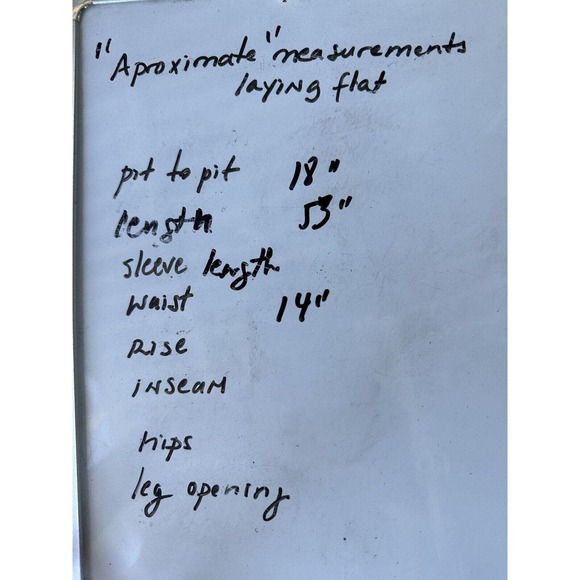 "Aproximate" measurements
laying flat
pit to pit 18"
length 53"
sleeve length
waist 14"
Rise
inseam
hips
leg opening